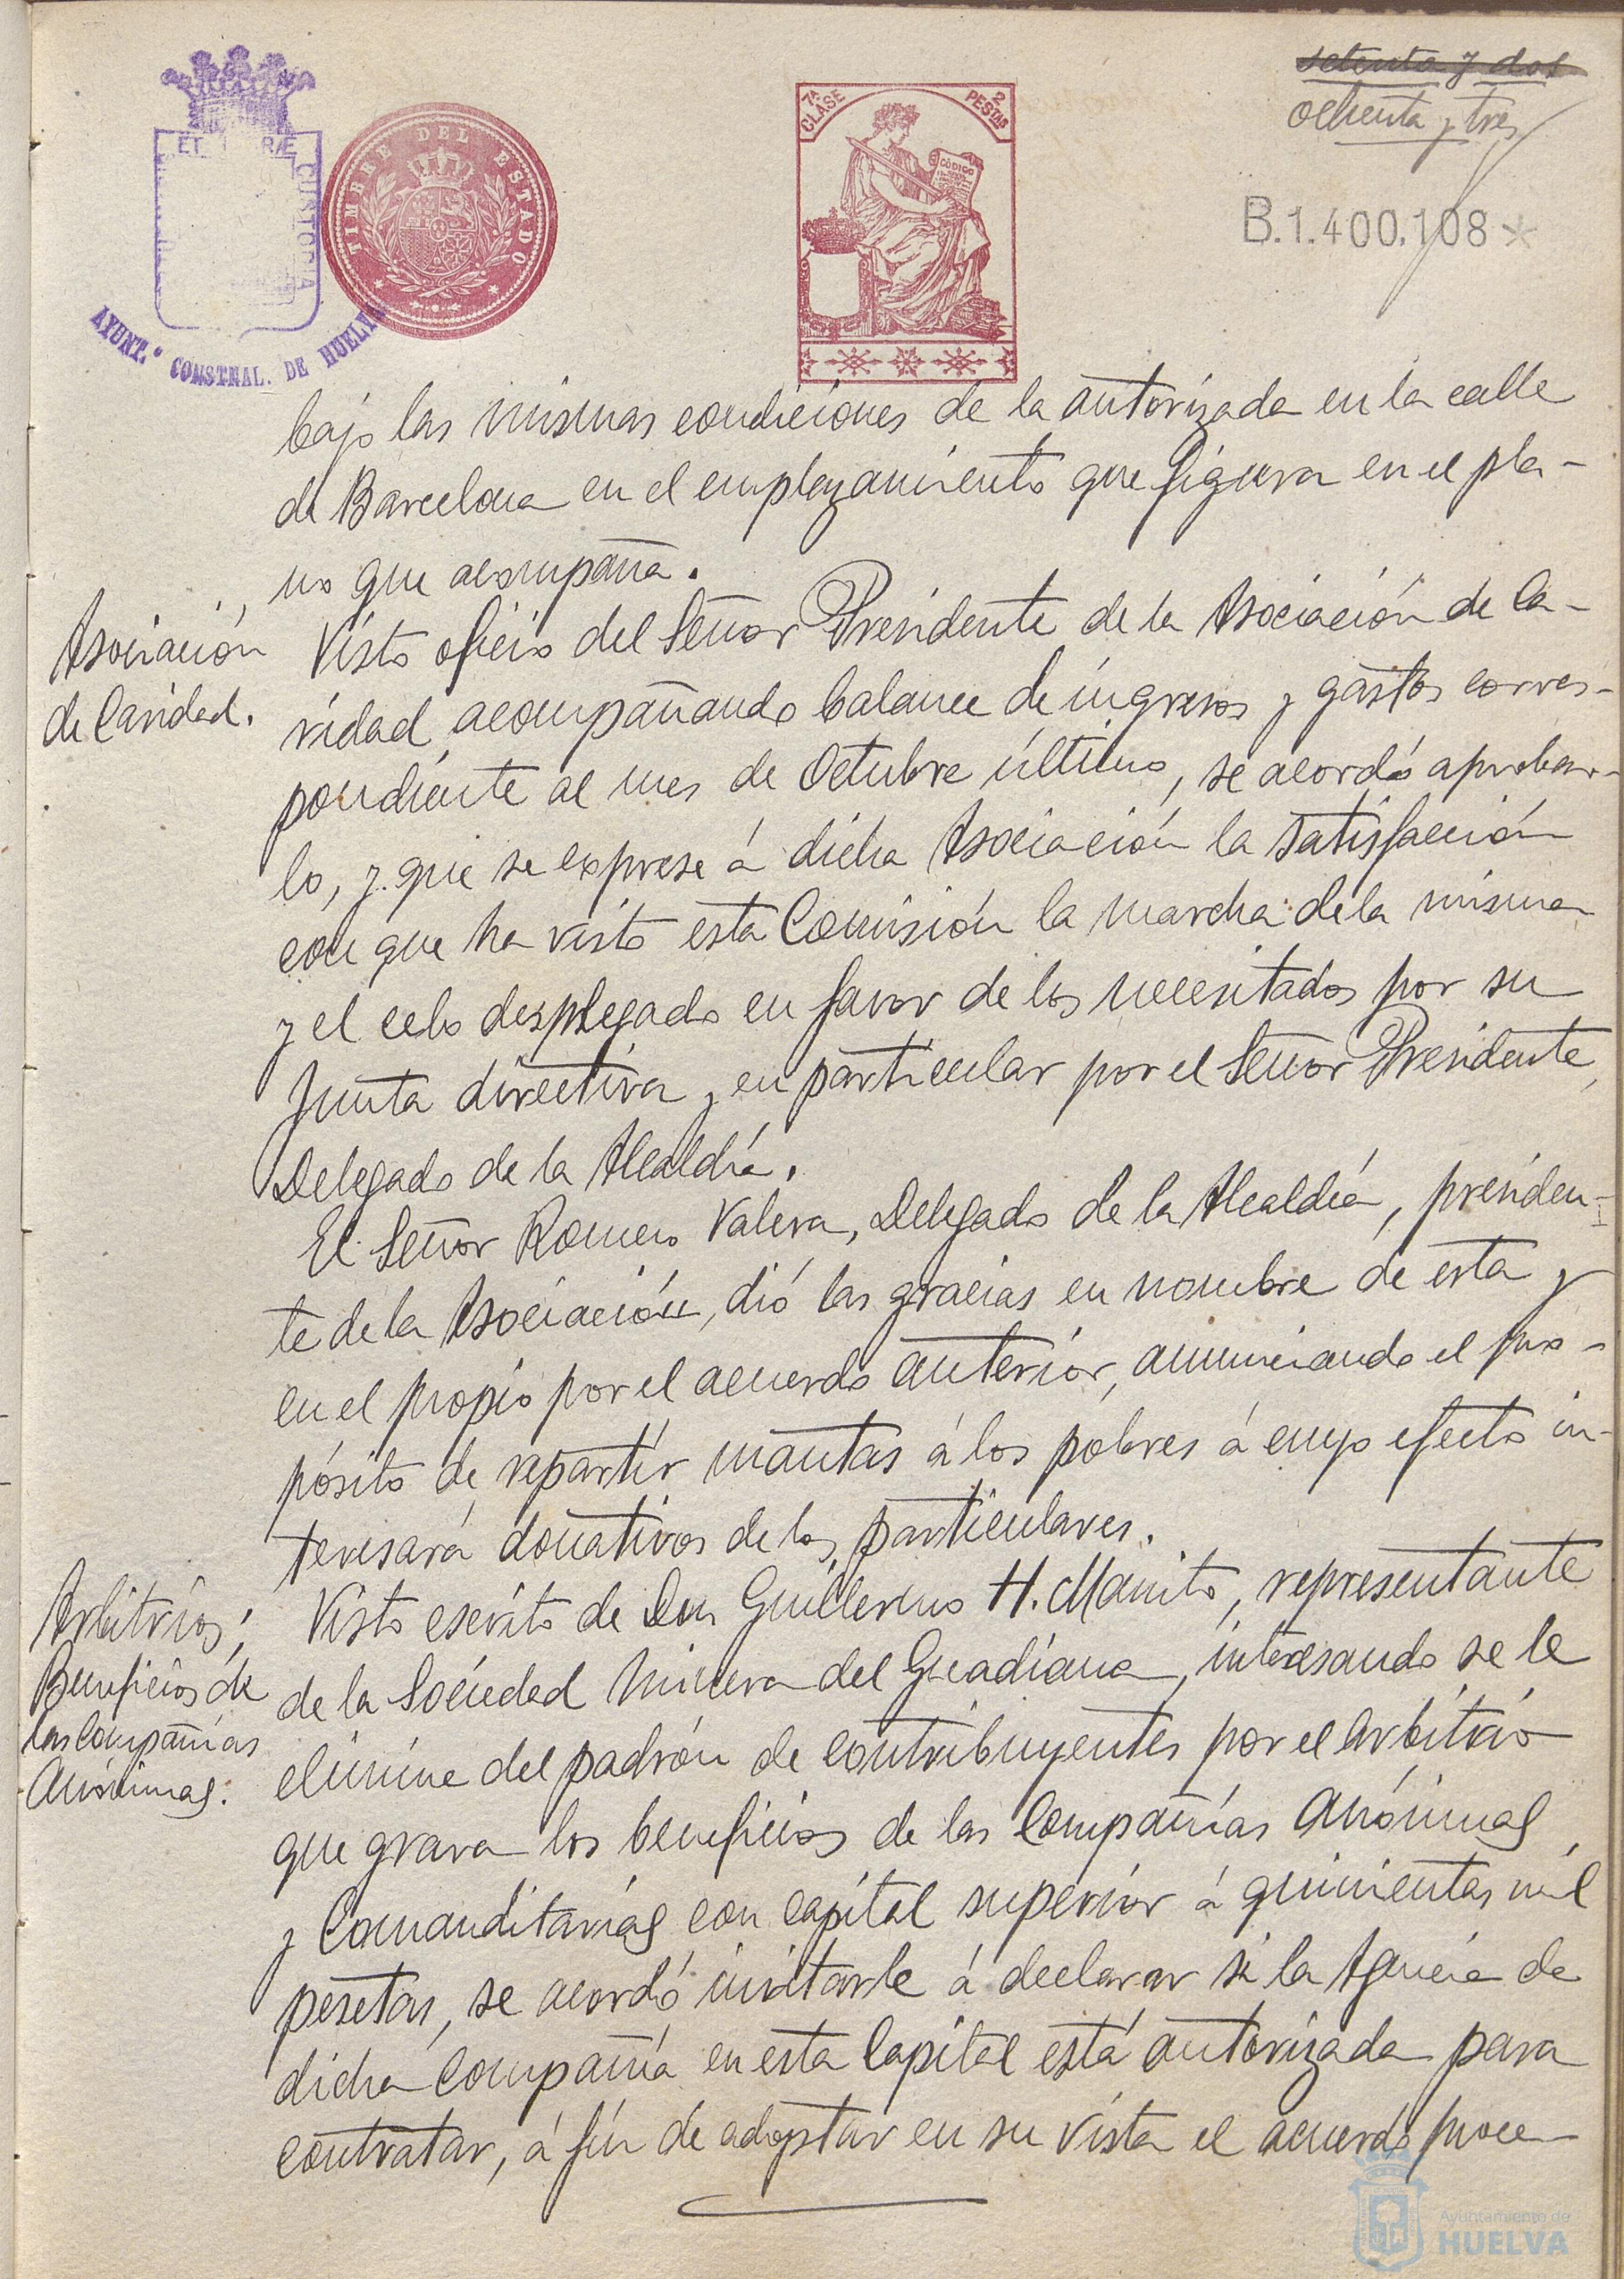 setenta y dos
ochenta y tres
ET RIÆ CUSTODIA
AYUNT.º CONSTNAL. DE HUELVA
TIMBRE DEL ESTADO
7ª CLASE
2 PESETAS
CÓDIGO
B.1.400.108*
bajo las mismas condiciones de la autorizada en la calle
de Barcelona en el emplazamiento que figura en el pla-
no que acompaña.
Asociación
de Caridad.
Visto oficio del Señor Presidente de la Asociación de Ca-
ridad acompañando balance de ingresos y gastos corres-
pondiente al mes de Octubre último, se acordó aprobar-
lo, y que se exprese á dicha Asociación la satisfacción
con que ha visto esta Comisión la marcha de la misma
y el celo desplegado en favor de los necesitados por su
Junta directiva y en particular por el Señor Presidente,
Delegado de la Alcaldía.
El Señor Romero Valera, Delegado de la Alcaldía, presiden-
te de la Asociación, dió las gracias en nombre de esta y
en el propio por el acuerdo anterior, anunciando el pro-
pósito de repartir mantas á los pobres á cuyo efecto in-
teresará donativos de los particulares.
Arbitrios;
Beneficios de
las Compañías
Anónimas.
Visto escrito de Don Guillermo H. Manito, representante
de la Sociedad Minera del Guadiana, interesando se le
elimine del padrón de contribuyentes por el arbitrio
que grava los beneficios de las Compañías Anónimas
y Comanditarias con capital superior á quinientas mil
pesetas, se acordó invitarle á declarar si la Agencia de
dicha Compañía en esta Capital está autorizada para
contratar, á fin de adoptar en su vista el acuerdo proce-
Ayuntamiento de
HUELVA